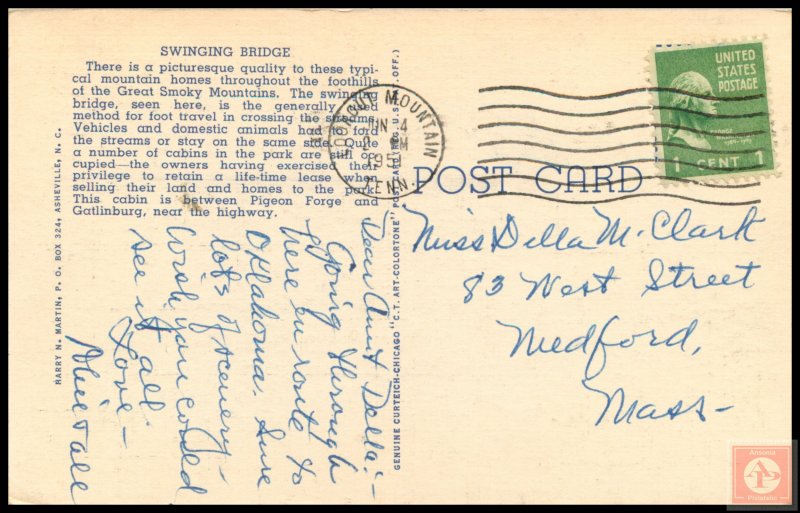 SWINGING BRIDGE
There is a picturesque quality to these typi-
cal mountain homes throughout the foothills
of the Great Smoky Mountains. The swinging
bridge, seen here, is the generally used
method for foot travel in crossing the streams.
Vehicles and domestic animals had to ford
the streams or stay on the same side. Quite
a number of cabins in the park are still oc-
cupied—the owners having exercised their
privilege to retain a life-time lease when
selling their land and homes to the park.
This cabin is between Pigeon Forge and
Gatlinburg, near the highway.
HARRY N. MARTIN, P. O. BOX 324, ASHEVILLE, N. C.
GENUINE CURTEICH-CHICAGO "C.T. ART-COLORTONE" POST CARD (REG. U.S. PAT. OFF.)
LOOKOUT MOUNTAIN
JUN 4
PM
195
TENN.
UNITED
STATES
POSTAGE
GEORGE WASHINGTON
1789-1797
1 CENT 1
POST CARD
Dear Aunt Della:-
Going through
here en route to
Oklahoma. Sure
lots of scenery -
Wish you could
see it all
Love -
&all
Miss Della M. Clark
83 West Street
Medford,
Mass-
Ansonia
Philatelic